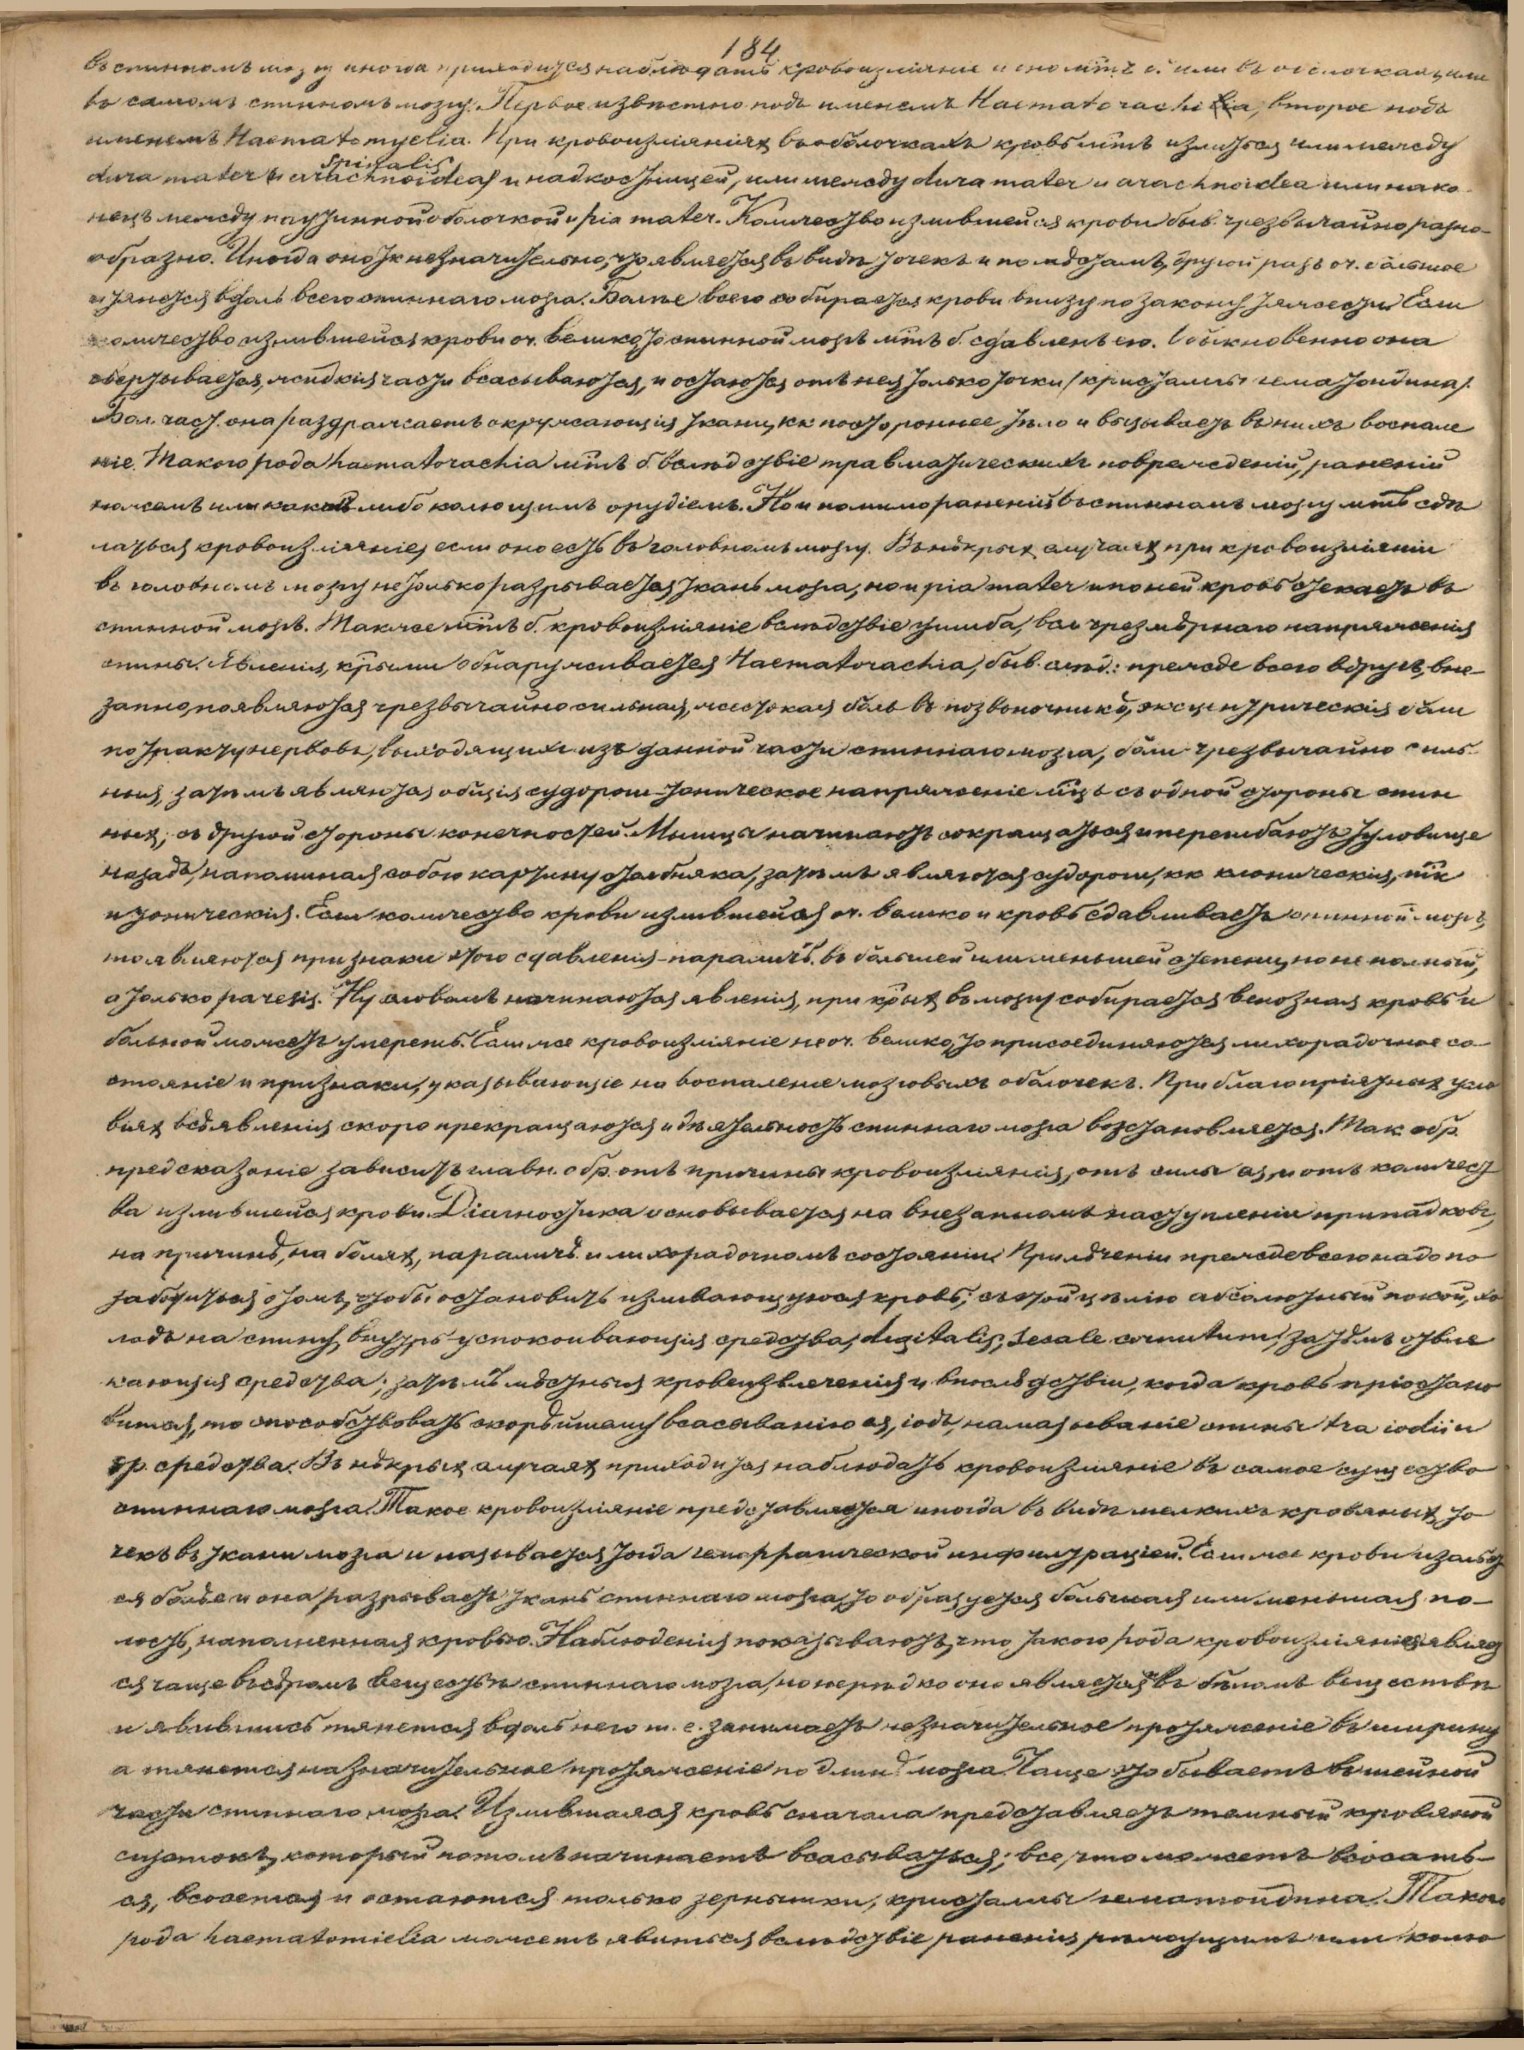 184
въ спинномъ мозгу иногда приходится наблюдать кровоизліяніе и оно мжтъ б. или въ оболочкахъ или
въ самомъ спинномъ мозгу. Первое извѣстно подъ именемъ Haematorachia, второе подъ
именемъ Haematomyelia. При кровоизліяніяхъ въ оболочкахъ кровь мжтъ излиться или между
dura mater spinalis и надкостницей, или между dura mater и arachnoidea или нако-
нецъ между паутинной оболочкой и pia mater. Количество излившейся крови быв. чрезвычайно разно-
образно. Иногда оно тк незначительно, что является въ видѣ точекъ и по мѣстамъ, другой разъ оч. большое
и тянется вдоль всего спиннаго мозга. Болѣе всего собирается крови внизу по закону тяжести. Если
количество излившейся крови оч. велико, то спинной мозгъ мжтъ б. сдавленъ ею. Обыкновенно она
свертывается, жидкія части всасываются, и остаются отъ нея только точки /кристаллы гематоидина/.
Бол. част. она раздражаетъ окружающія ткани, кк постороннее тѣло и вызываетъ въ нихъ воспале
ніе. Такого рода haematorachia мжтъ б. вслѣдствіе травматическихъ поврежденій, раненій
ножемъ или какимъ либо колющимъ орудіемъ. Но и помимо раненій въ спинномъ мозгу мжтъ сдѣ
латься кровоизліяніе, если оно есть въ головномъ мозгу. Въ нѣкрыхъ случаяхъ при кровоизліяніи
въ головномъ мозгу не только разрывается ткань мозга, но и pia mater и по ней кровь стекаетъ въ
спинной мозгъ. Также мжтъ б. кровоизліяніе вслѣдствіе ушиба, всл. чрезмѣрнаго напряженія
спины. Явленія, крыми обнаруживается Haematorachia, быв. слѣд.: прежде всего вдругъ, вне-
запно, появляются чрезвычайно сильная, жестокая боль въ позвоночникѣ, эксцентрическія боли
по тракту нервовъ, выходящихъ изъ данной части спиннаго мозга, боли чрезвычайно силь-
ныя, затѣмъ являются общія судороги - тоническое напряженіе мцъ съ одной стороны спин
ныхъ, съ другой стороны конечностей. Мышцы начинаютъ сокращаться и перегибаютъ туловище
назадъ, напоминая собою картину столбняка, затѣмъ являются судороги, кк клоническія, тк
и тоническія. Если количество крови излившейся оч. велико и кровь сдавливаетъ спинной мозгъ,
то являются признаки этого сдавленія - параличъ въ большей или меньшей степени, но не полный,
а только paresis. Ну словомъ начинаются явленія, при крыхъ въ мозгу собирается венозная кровь и
больной можетъ умереть. Если же кровоизліяніе не оч. велико, то присоединяются лихорадочное со-
стояніе и признаки, указывающіе на воспаленіе мозговыхъ оболочекъ. При благопріятныхъ усло
віяхъ всѣ явленія скоро прекращаются и дѣятельность спиннаго мозга возстановляется. Так. обр.
предсказаніе зависитъ главн. обр. отъ причины кровоизліянія, отъ силы ея, и отъ количест
ва излившейся крови. Діагностика основывается на внезапномъ наступленіи припадковъ,
на причинѣ, на боляхъ, параличѣ и лихорадочномъ состояніи. При лѣченіи прежде всего надо по
заботиться о томъ, чтобы остановить изливающуюся кровь; съ этой цѣлію абсолютный покой, хо
лодъ на спину, внутрь успокоивающія средства, digitalis, secale cornutum; затѣмъ отвле
кающія средства; затѣмъ мѣстныя кровеизвлеченія и впослѣдствіи, когда кровь пріостано
вится, то способствовать скорѣйшему всасыванію ея, іодъ, намазываніе спины tra iodii и
др. средства. Въ нѣкрыхъ случаяхъ приходится наблюдать кровоизліяніе въ самое существо
спиннаго мозга. Такое кровоизліяніе представляется иногда въ видѣ мелкихъ кровяныхъ то
чекъ въ ткани мозга и называется тогда геморрагической инфильтраціей. Если же крови излет
ся болѣе и она разрываетъ ткань спиннаго мозга, то образуется большая или меньшая по-
лость, наполненная кровью. Наблюденія показываютъ, что такого рода кровоизліяніе являет
ся чаще въ сѣромъ веществѣ спиннаго мозга, но нерѣдко оно является въ бѣломъ веществѣ
и явившись тянется вдоль него т. е. занимаетъ незначительное протяженіе въ ширину
а тянется на значительное протяженіе по длинѣ мозга. Чаще это бываетъ въ шейной
части спиннаго мозга. Излившаяся кровь сначала представляетъ темный кровяной
сгустокъ, который потомъ начинаетъ всасываться; все, что можетъ всосать-
ся, всосется и остаются только зернышки, кристаллы гематоидина. Такого
рода haematomielia можетъ явиться вслѣдствіе раненія рѣжущимъ или колю